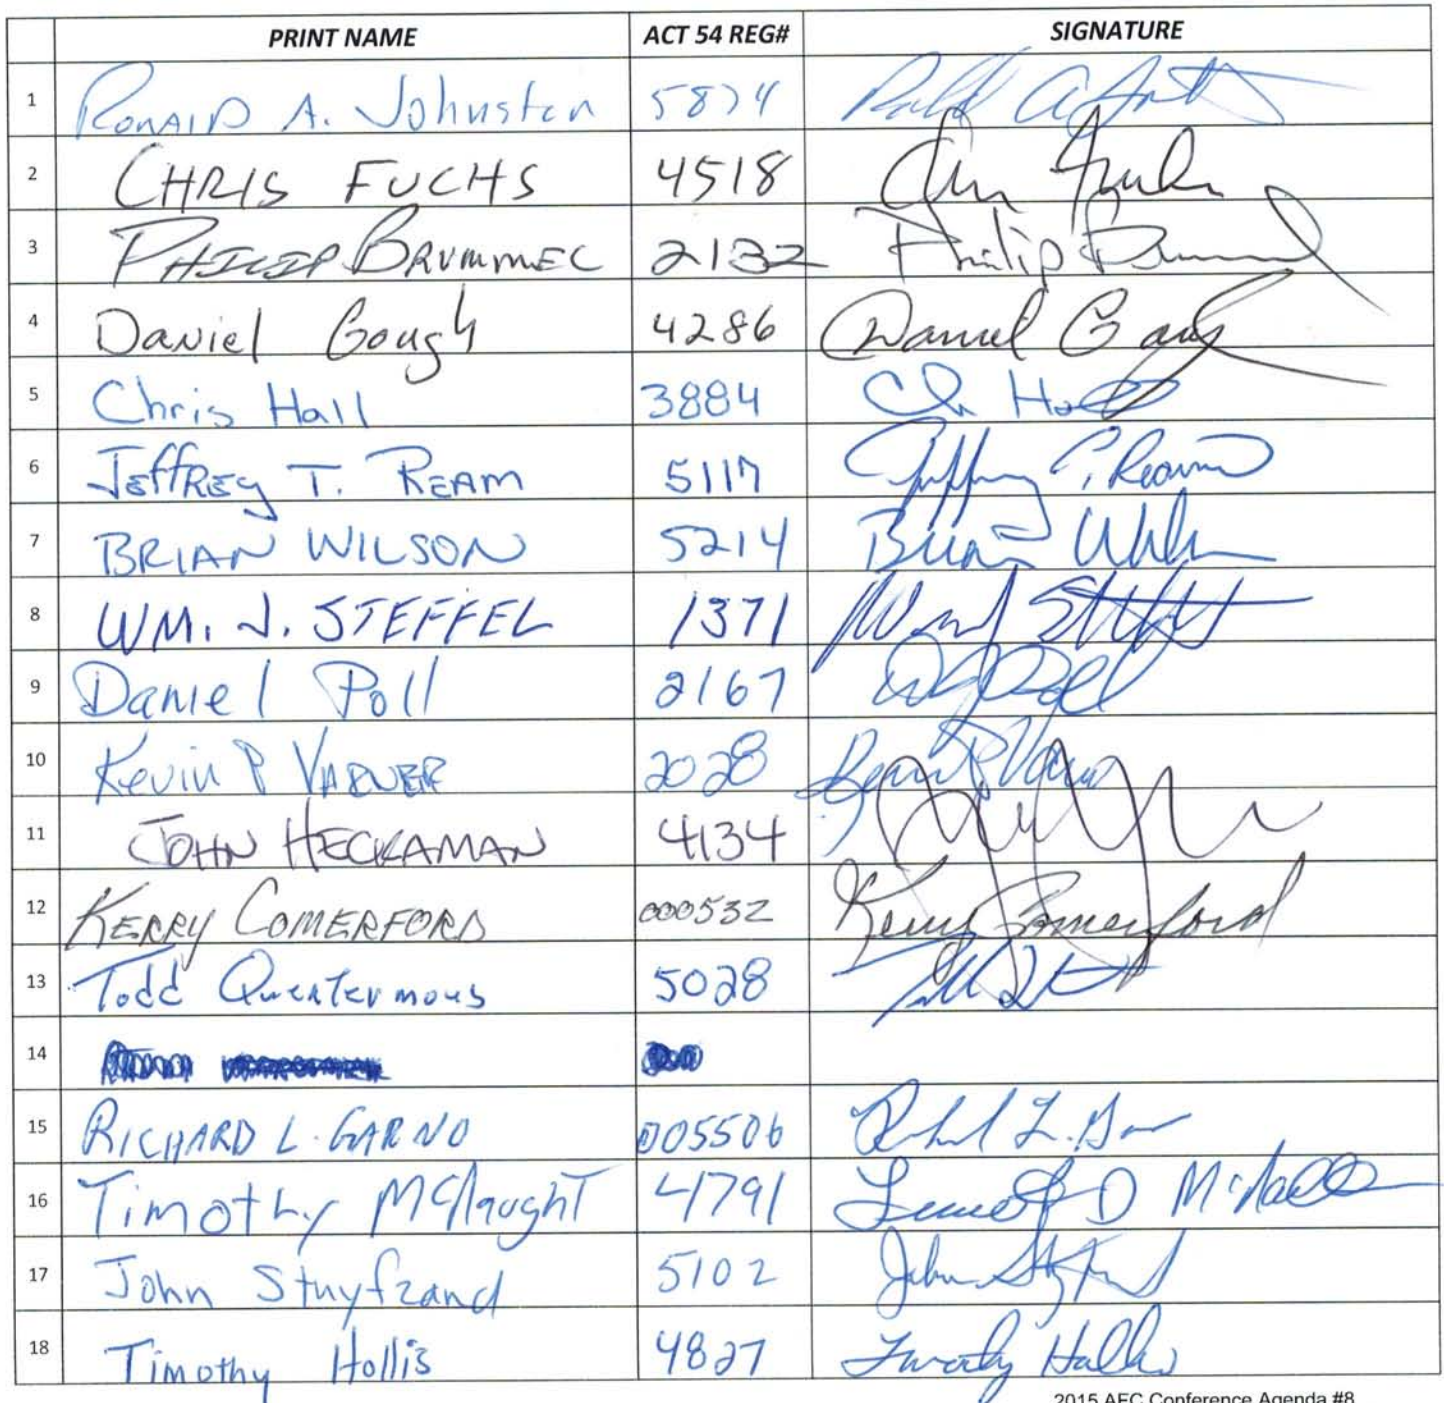 PRINT NAME ACT 54 REG# SIGNATURE
1 RONALD A. Johnston 5874 
2 CHRIS FUCHS 4518
3 PHILIP BRUMMEL 2132 Philip
4 Daniel Gough 4286 Daniel Gough
5 Chris Hall 3884 Ch Hall
6 JEFFREY T. REAM 5117 Jeffrey T. Ream
7 BRIAN WILSON 5214 Brian
8 WM. J. STEFFEL 1371
9 Daniel Poll 2167
10 Kevin P VARNER 2028 Kevin P Varner
11 JOHN HECKAMAN 4134
12 KERRY COMERFORD 000532 Kerry Comerford
13 Todd Quertermous 5028
14
15 RICHARD L. GARNO 005506
16 Timothy McNaught 4791 D
17 John Stuyfzand 5102 John
18 Timothy Hollis 4827 Timothy Hollis
2015 AEC Conference Agenda #8